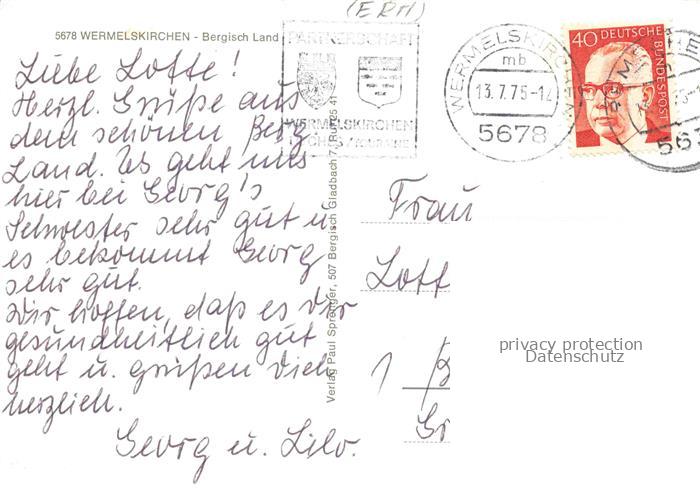 (ERM)
5678 WERMELSKIRCHEN - Bergisch Land
PARTNERSCHAFT
WERMELSKIRCHEN
LOCHES/TOURAINE
WERMELSKIRCHEN
mb
13.7.75-14
5678
40 DEUTSCHE BUNDESPOST
Liebe Lotte!
Herzl. Grüße aus
dem schönen Berg.
Land. Es geht uns
hier bei Georg's
Schwester sehr gut u.
es bekommt Georg
sehr gut.
Wir hoffen, daß es Dir
gesundheitlich gut
geht u. grüßen Dich
herzlich.
Georg u. Lilo.
Verlag Paul Sprenger, 507 Bergisch Gladbach 7, Ruf
Frau
Lott
1 B
Gr
privacy protection
Datenschutz